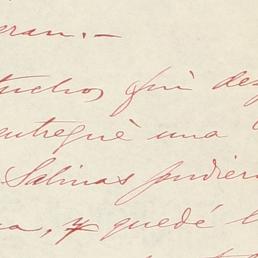 eran.—
tuchos qui des
entregué una
Salinas pudier
a, y quedé l